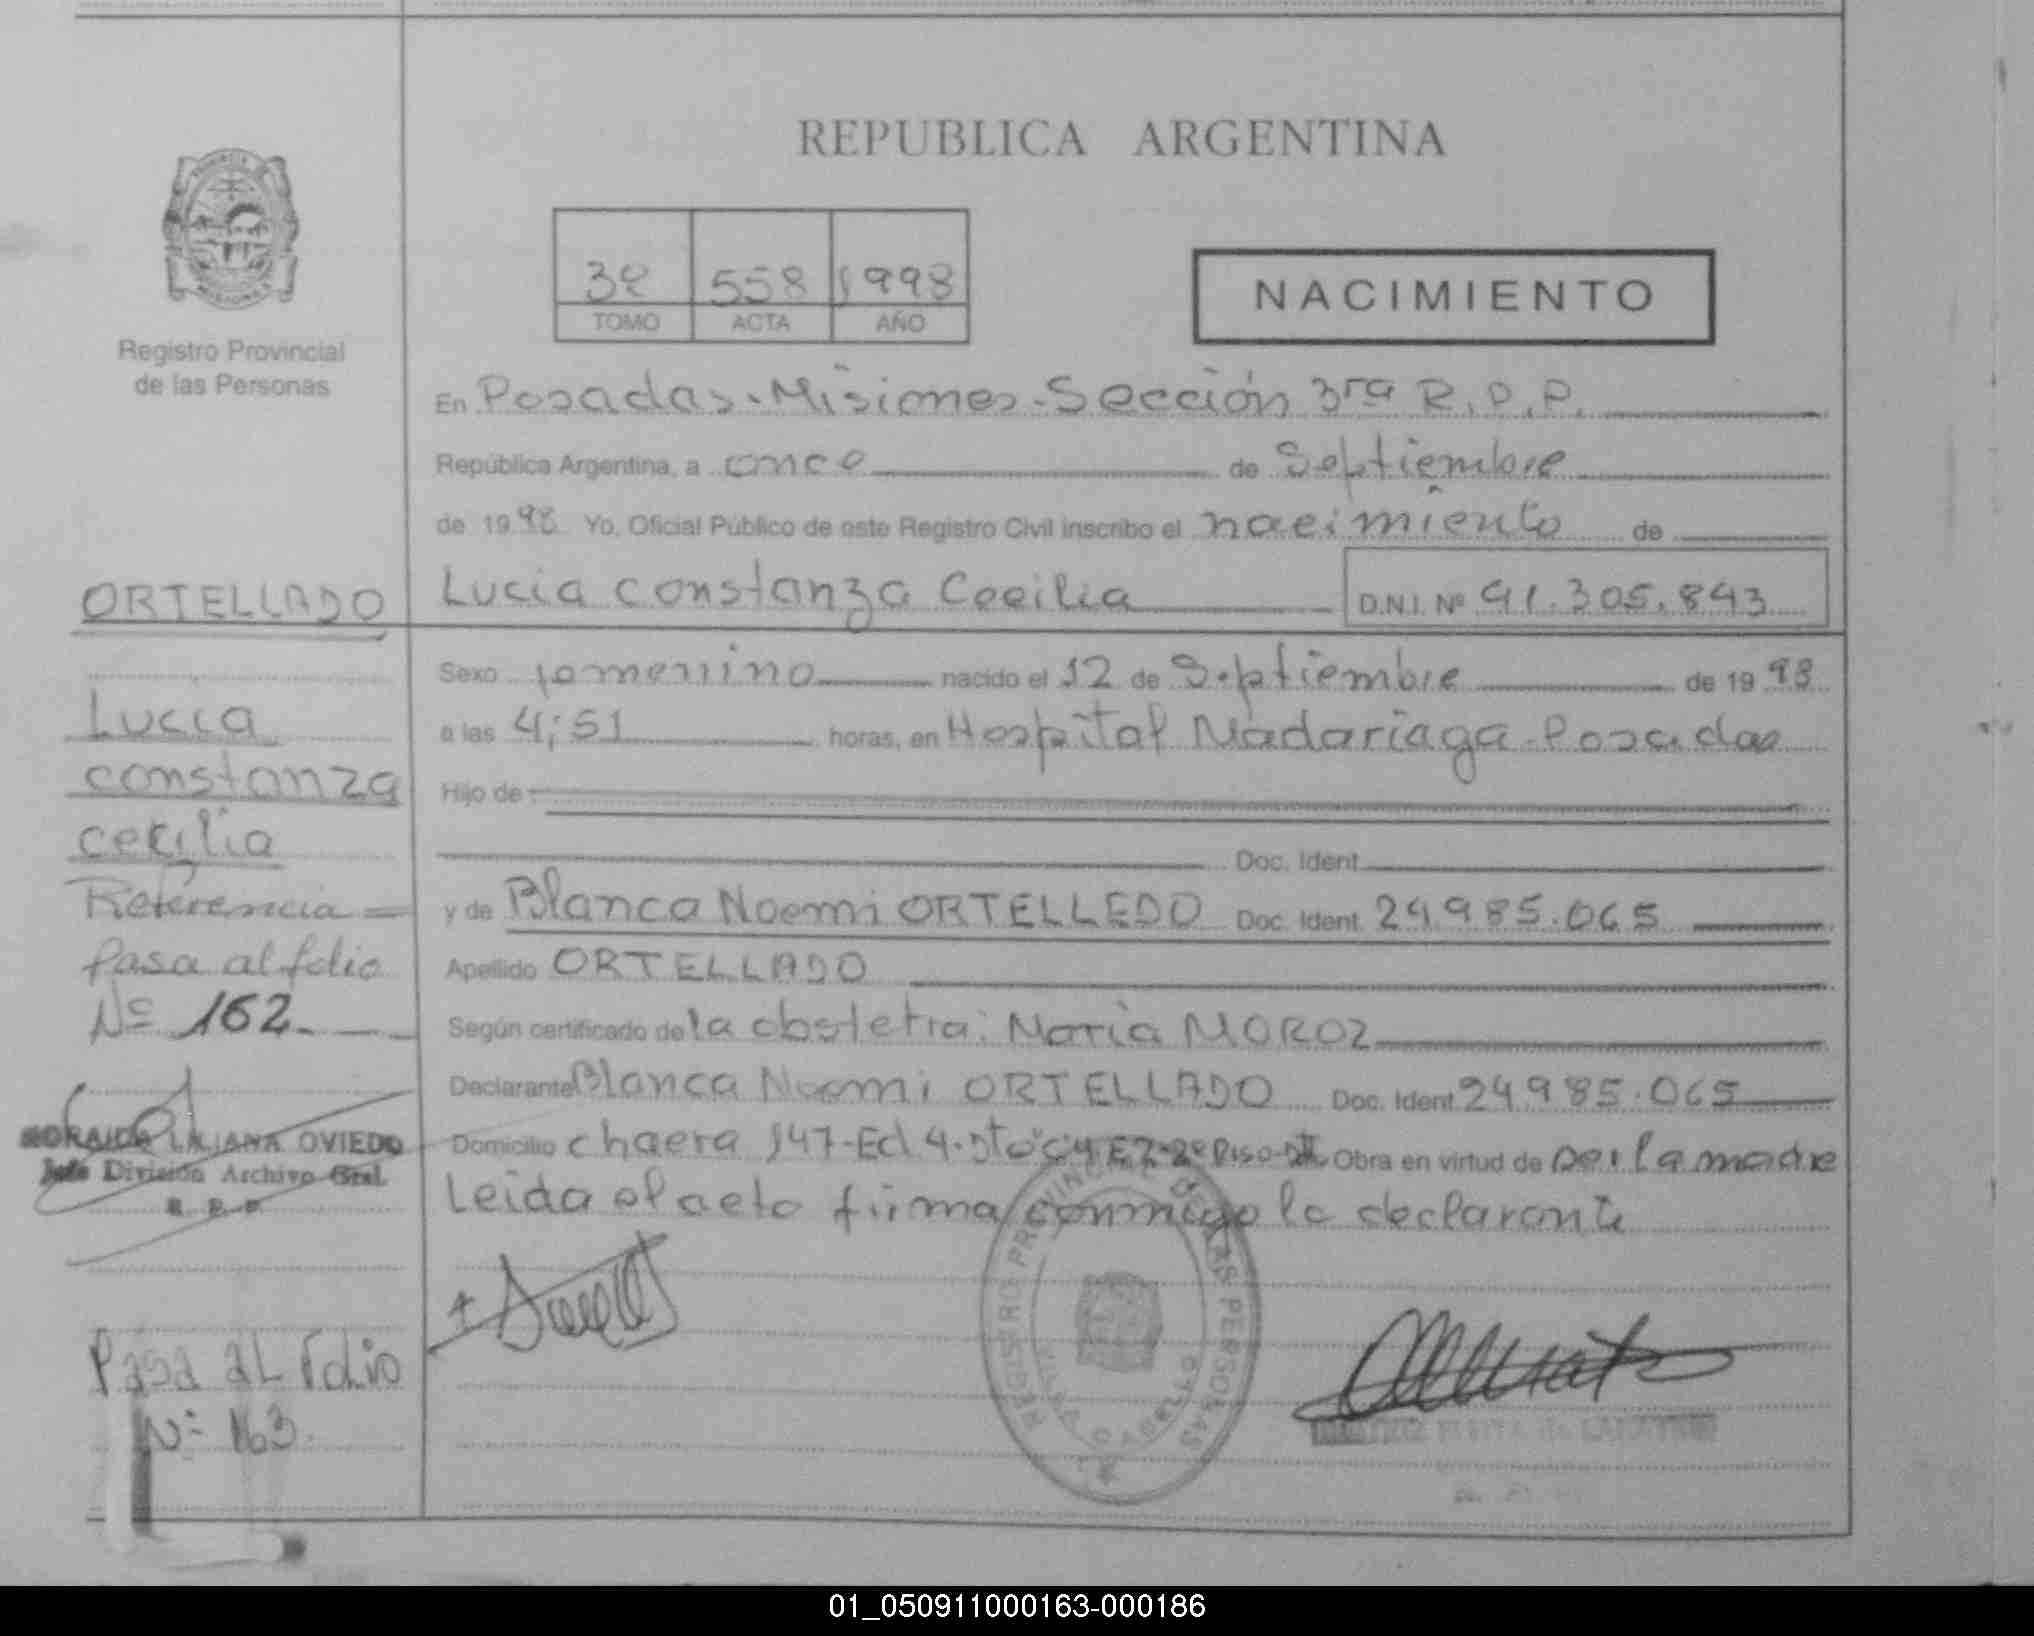 REPUBLICA ARGENTINA
3º 558 1998
TOMO ACTA AÑO
NACIMIENTO
Registro Provincial
de las Personas
En Posadas-Misiones-Sección 3ra R.P.P.
República Argentina, a once de Septiembre
de 1998 Yo, Oficial Público de este Registro Civil inscribo el nacimiento de
ORTELLADO
Lucia Constanza Cecilia D.N.I. Nº 41.305.843
Sexo femenino nacido el 12 de Septiembre de 1998
a las 4;51 horas, en Hospital Madariaga-Posadas
Hijo de
Doc. Ident.
y de Blanca Noemi ORTELLEDO Doc. Ident. 24.985.065
Apellido ORTELLADO
Según certificado de la obstetra: Maria MOROZ
Declarante Blanca Noemi ORTELLADO Doc. Ident 24.985.065
Domicilio chacra 147-Ed 4- Obra en virtud de ser la madre
Leida el acto firma conmigo la declarante
Lucia
constanza
cecilia
Referencia
Pasa al folio
Nº 162
LILIANA OVIEDO
Jefe División Archivo Gral.
R. P. P.
Pasa al Folio
Nº 163.
REGISTRO PROVINCIAL DE LAS PERSONAS
01_050911000163-000186